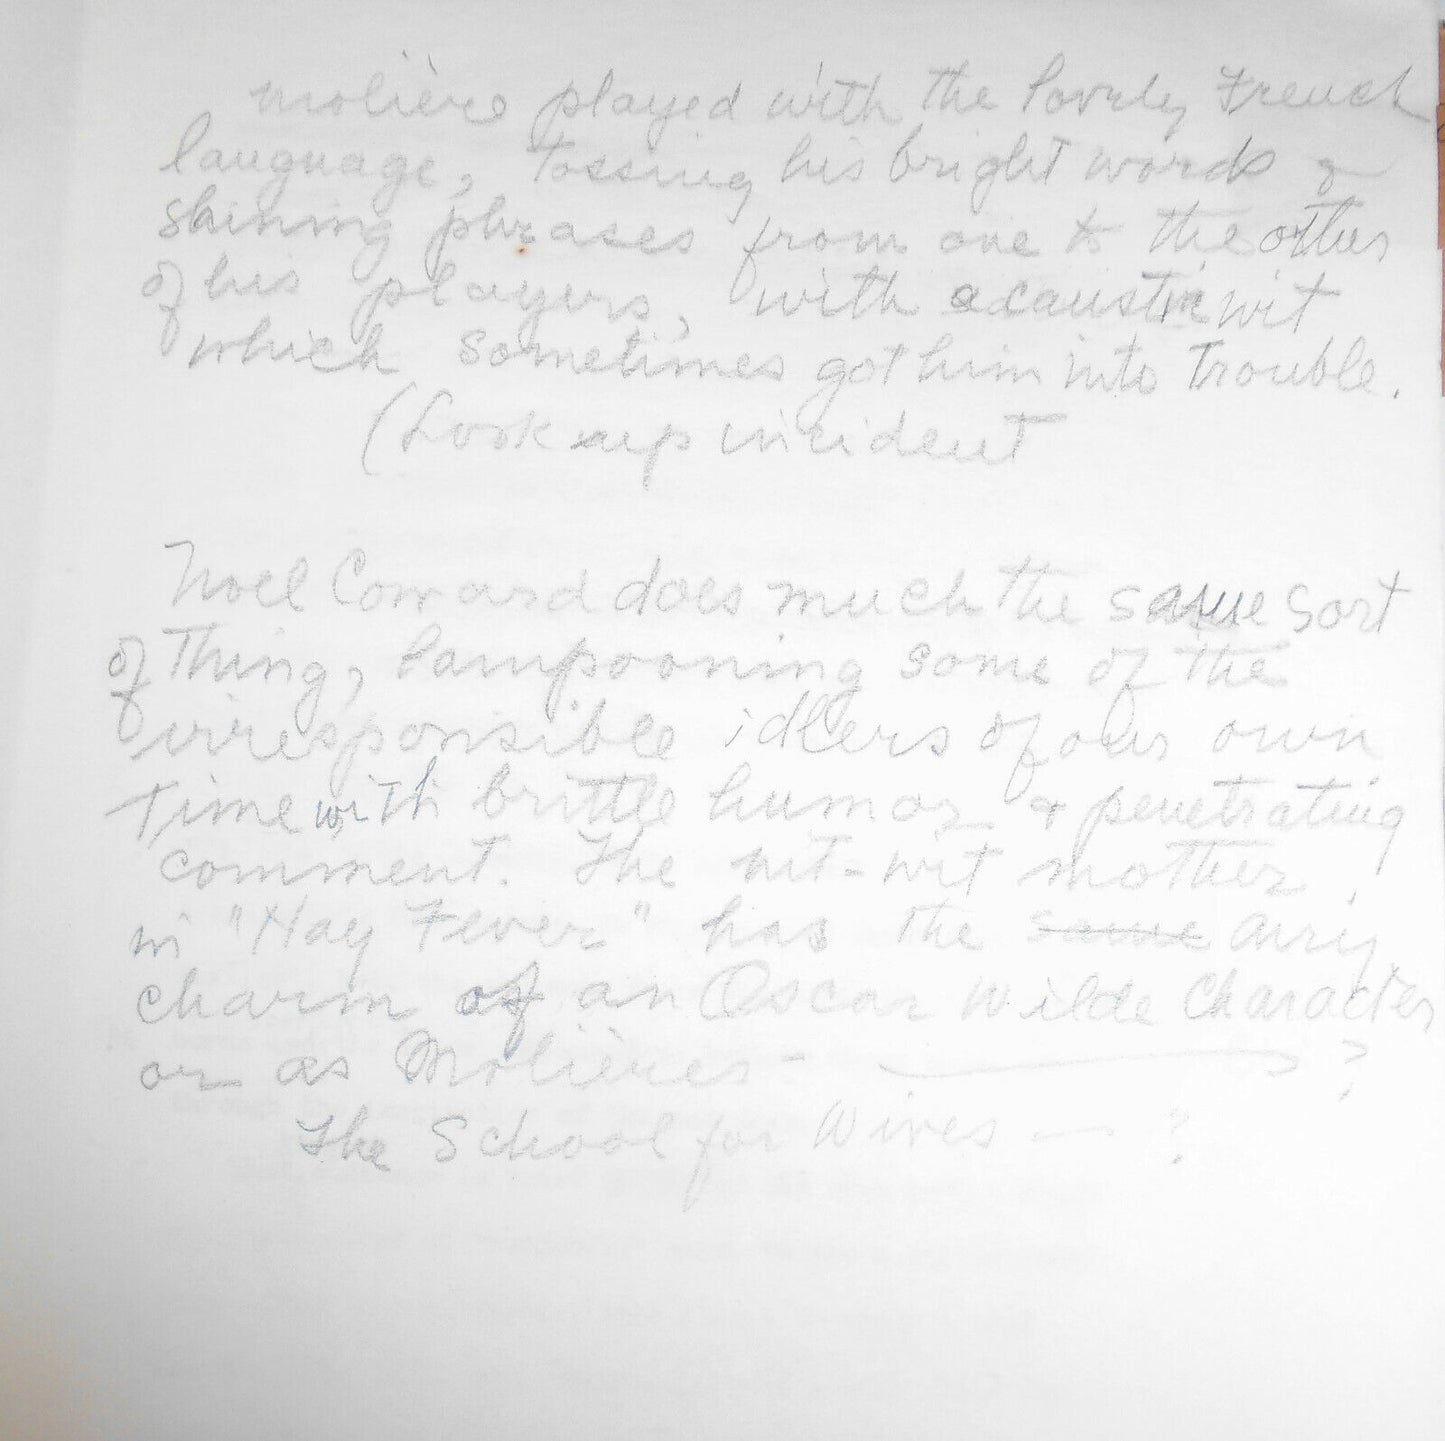 Molière played with the lovely French
language, tossing his bright words &
shining phrases from one to the other
of his players, with a caustic wit
which sometimes got him into trouble.
(Look up incident
Noel Coward does much the same sort
of Thing, lampooning some of the
irresponsible idlers of our own
Time with brittle humor & penetrating
comment. The nit-wit mother
in "Hay Fever" has the same airy
charm of an Oscar Wilde Character
or as Molières - — ?
The School for Wives — ?